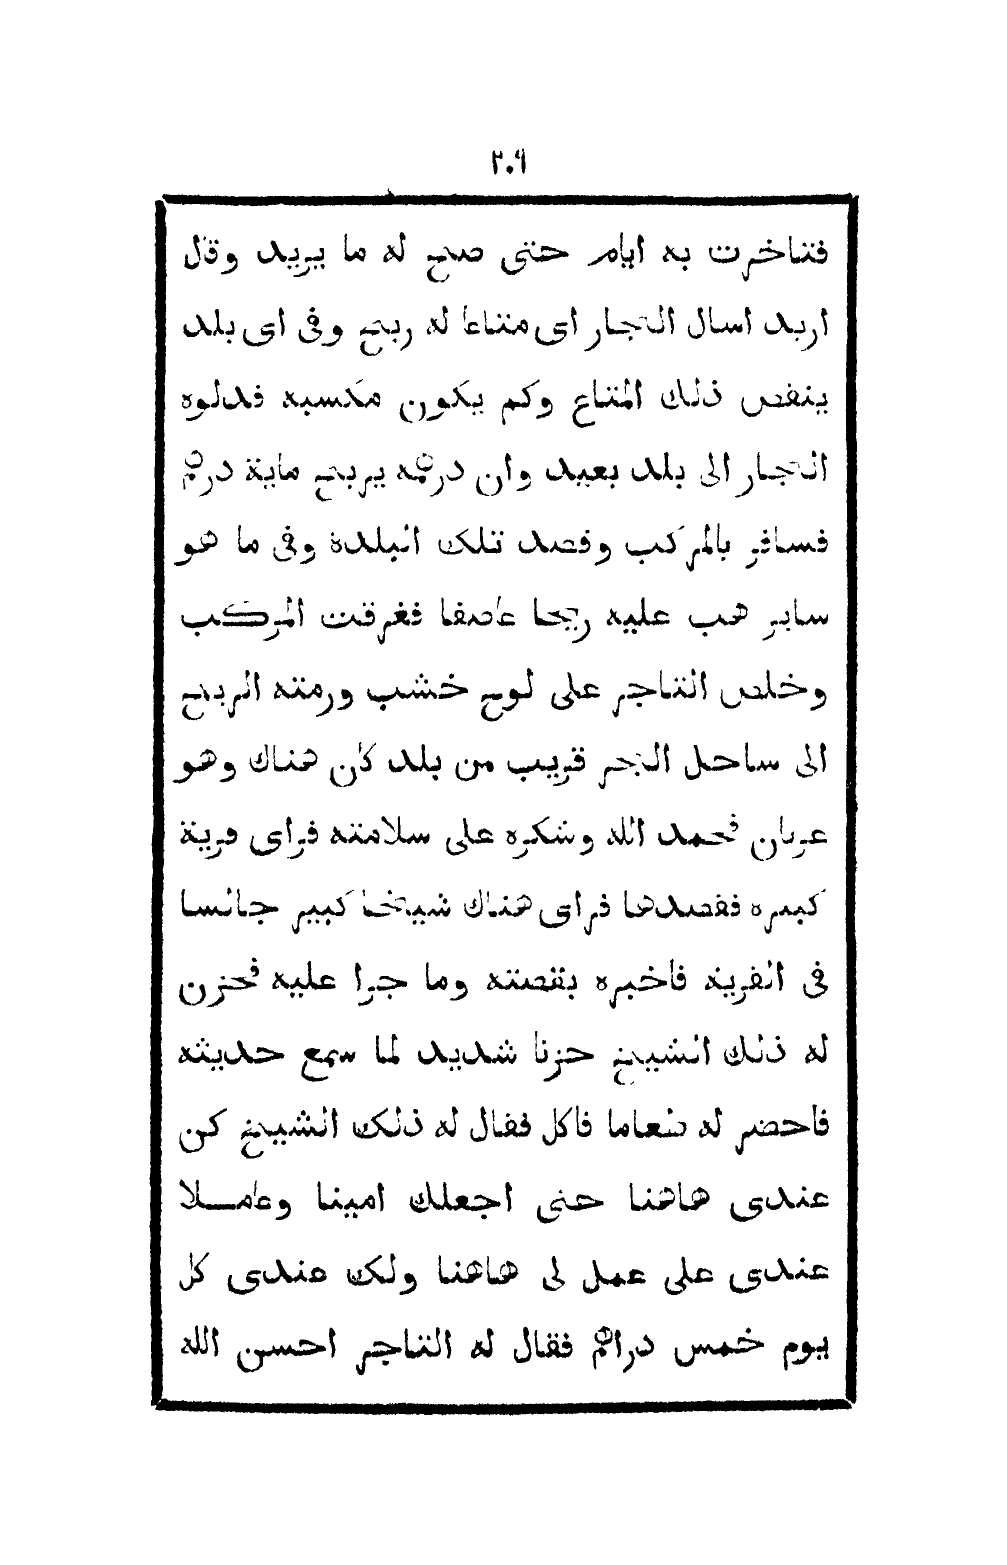 ٢٠٩
فتاخرت به ايام حتى صح له ما يريد وقال
اريد اسال التجار اى متاعا له ربح وفى اى بلد
ينفص ذلك المتاع وكم يكون مكسبه فدلوه
التجار الى بلد بعيد وان درهمه يربح ماية درهم
فسافر بالمركب وقصد تلك البلدة وفى ما هو
ساير هب عليه ريحا عاصفا فغرقت المركب
وخلص التاجر على لوح خشب ورمته الريح
الى ساحل البحر قريب من بلد كان هناك وهو
عريان فحمد الله وشكره على سلامته فراى قرية
كبيره فقصدها فراى هناك شيخا كبير جالسا
فى القرية فاخبره بقصته وما جرا عليه فحزن
له ذلك الشيخ حزنا شديد لما سمع حديثه
فاحضر له طعاما فاكل فقال له ذلك الشيخ كن
عندى هاهنا حتى اجعلك امينا وعاملا
عندى على عمل لى هاهنا ولك عندى كل
يوم خمس دراهم فقال له التاجر احسن الله